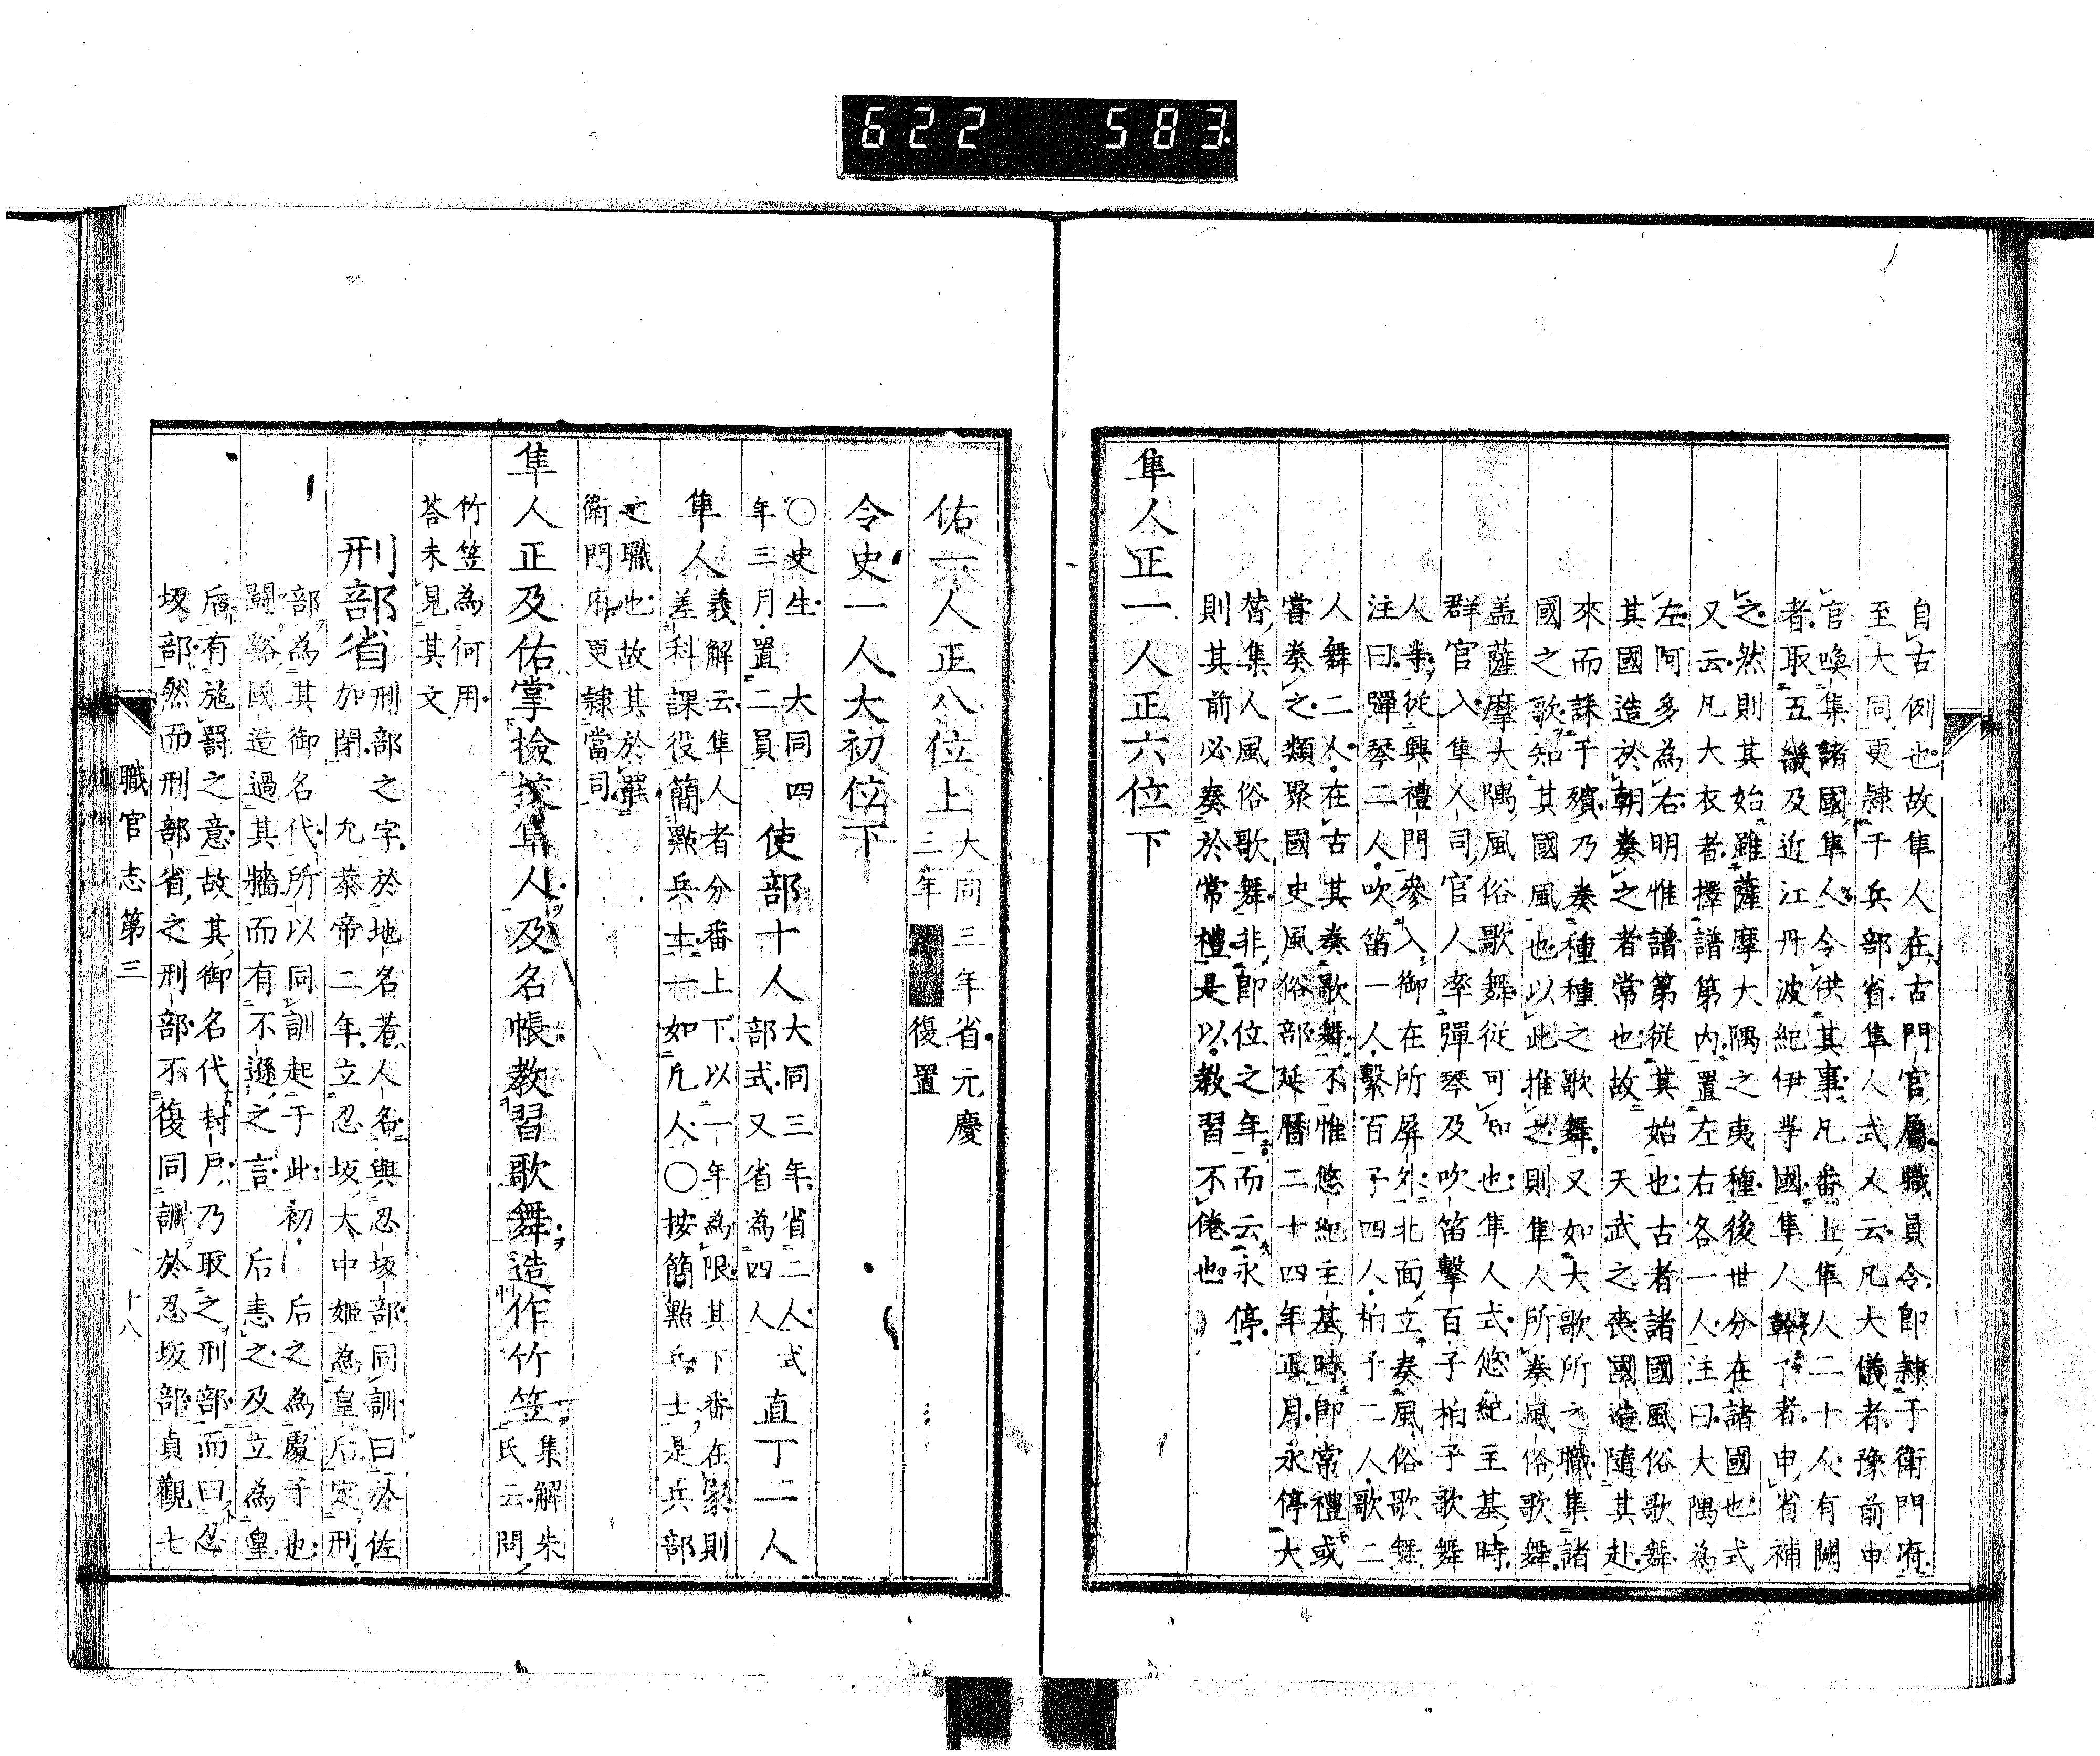 622 583
自古例也故隼人在古門官屬職員令即隷于衛門府
至大同更隷于兵部省隼人式又云凡大儀者豫前申
官喚集諸國隼人令供其事凡番上隼人二十人有闕
者取五畿及近江丹波紀伊等國隼人幹了者申省補
之然則其始雖薩摩大隅之夷種後世分在諸國也式
又云凡大衣者擇譜第内置左右各一人注曰大隅為
左阿多為右明惟譜第従其始也古者諸國風俗歌舞
其國造於朝奏之者常也故天武之喪國造隨其赴
來而誄于殯乃奏種種之歌舞又如大歌所之職集諸
國之歌知其國風也以此推之則隼人所奏風俗歌舞
盖薩摩大隅風俗歌舞従可知也隼人式悠紀主基時
群官入隼人司官人率彈琴及吹笛擊百子柏子歌舞
人等従興禮門參入御在所屏外北面立奏風俗歌舞
注曰彈琴二人吹笛一人繫百子四人柏子二人歌二
人舞二人在古其奏歌舞不惟悠紀主基時即常禮或
嘗奏之類聚國史風俗部延暦二十四年正月永停大
替集人風俗歌舞非即位之年而云永停
則其前必奏於常禮是以教習不倦也
隼人正一人正六位下
佑一人正八位上大同三年省元慶
三年復置
令史一人大初位下
○史生大同四
年三月置二員
使部十人大同三年省二人式
部式又省為四人
直丁二人
隼人義解云隼人者分番上下以一年為限其下番在家則
差科課役簡點兵士一如凡人○按簡點兵士是兵部
之職也故其於
衛門府更隷當司
隼人正及佑掌撿挍隼人及名帳教習歌舞造作竹笠集解朱
氏云問
竹笠為何用
荅未見其文
刑部省刑部之字於地名若人名與忍坂部同訓曰於佐
加閉允恭帝二年立忍坂大中姫為皇后定刑
部為其御名代所以同訓起于此初后之為處子也
鬪谿國造過其牆而有不遜之言后恚之及立為皇
后有施罸之意故其御名代封戸乃取之刑部而曰忍
坂部然而刑部省之刑部不復同訓於忍坂部貞觀七
職官志第三
十八